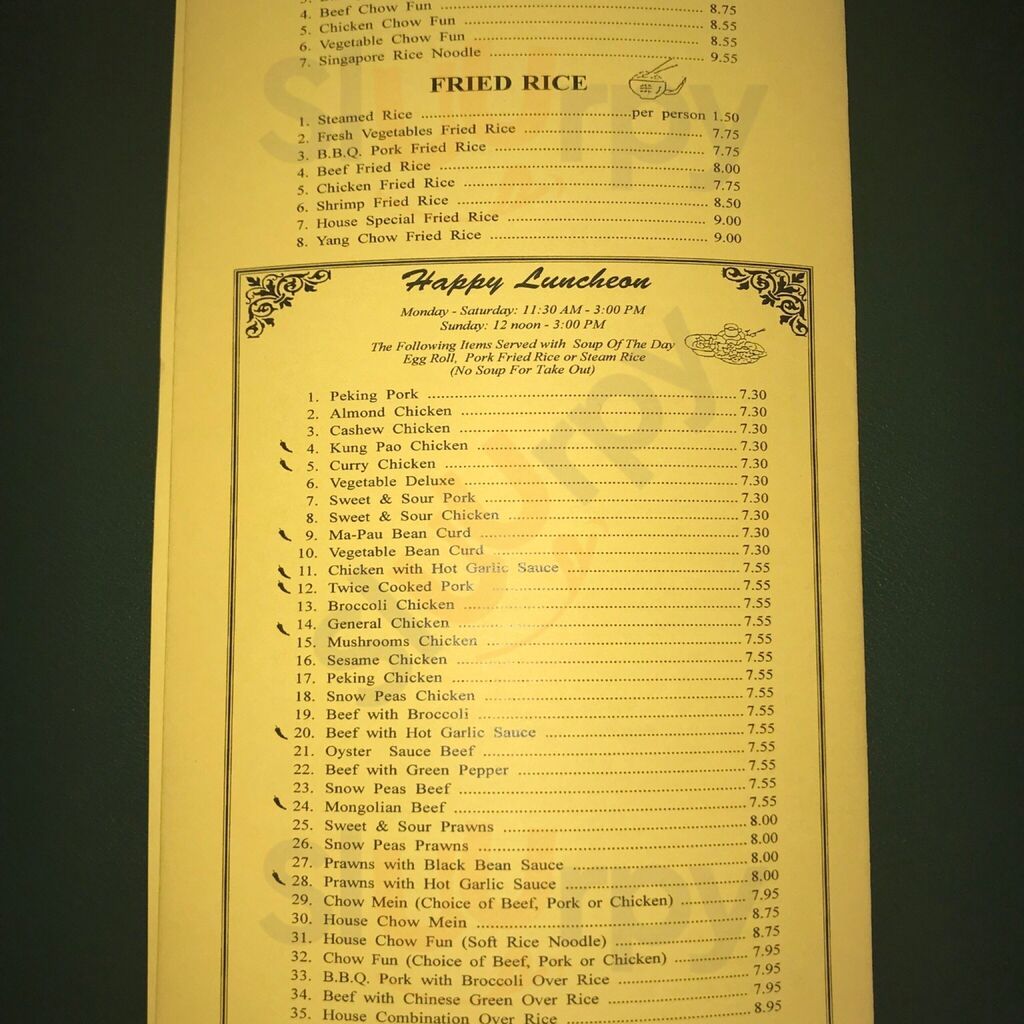 4. Beef Chow Fun 8.75
5. Chicken Chow Fun 8.55
6. Vegetable Chow Fun 8.55
7. Singapore Rice Noodle 9.55
FRIED RICE
1. Steamed Rice per person 1.50
2. Fresh Vegetables Fried Rice 7.75
3. B.B.Q. Pork Fried Rice 7.75
4. Beef Fried Rice 8.00
5. Chicken Fried Rice 7.75
6. Shrimp Fried Rice 8.50
7. House Special Fried Rice 9.00
8. Yang Chow Fried Rice 9.00
Happy Luncheon
Monday - Saturday: 11:30 AM - 3:00 PM
Sunday: 12 noon - 3:00 PM
The Following Items Served with Soup Of The Day
Egg Roll, Pork Fried Rice or Steam Rice
(No Soup For Take Out)
1. Peking Pork 7.30
2. Almond Chicken 7.30
3. Cashew Chicken 7.30
4. Kung Pao Chicken 7.30
5. Curry Chicken 7.30
6. Vegetable Deluxe 7.30
7. Sweet & Sour Pork 7.30
8. Sweet & Sour Chicken 7.30
9. Ma-Pau Bean Curd 7.30
10. Vegetable Bean Curd 7.30
11. Chicken with Hot Garlic Sauce 7.55
12. Twice Cooked Pork 7.55
13. Broccoli Chicken 7.55
14. General Chicken 7.55
15. Mushrooms Chicken 7.55
16. Sesame Chicken 7.55
17. Peking Chicken 7.55
18. Snow Peas Chicken 7.55
19. Beef with Broccoli 7.55
20. Beef with Hot Garlic Sauce 7.55
21. Oyster Sauce Beef 7.55
22. Beef with Green Pepper 7.55
23. Snow Peas Beef 7.55
24. Mongolian Beef 7.55
25. Sweet & Sour Prawns 8.00
26. Snow Peas Prawns 8.00
27. Prawns with Black Bean Sauce 8.00
28. Prawns with Hot Garlic Sauce 8.00
29. Chow Mein (Choice of Beef, Pork or Chicken) 7.95
30. House Chow Mein 8.75
31. House Chow Fun (Soft Rice Noodle) 8.75
32. Chow Fun (Choice of Beef, Pork or Chicken) 7.95
33. B.B.Q. Pork with Broccoli Over Rice 7.95
34. Beef with Chinese Green Over Rice 7.95
35. House Combination Over Rice 8.95